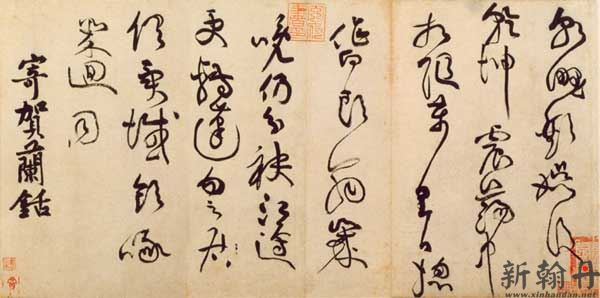 朝野歡娛後
乾坤震蕩中
相隨萬里日總
作白頭翁歲
晚仍分袂江邊
更轉蓬勿云
俱異域飲啄
幾回同
寄賀蘭銛
新翰丹
www.xinhandan.net